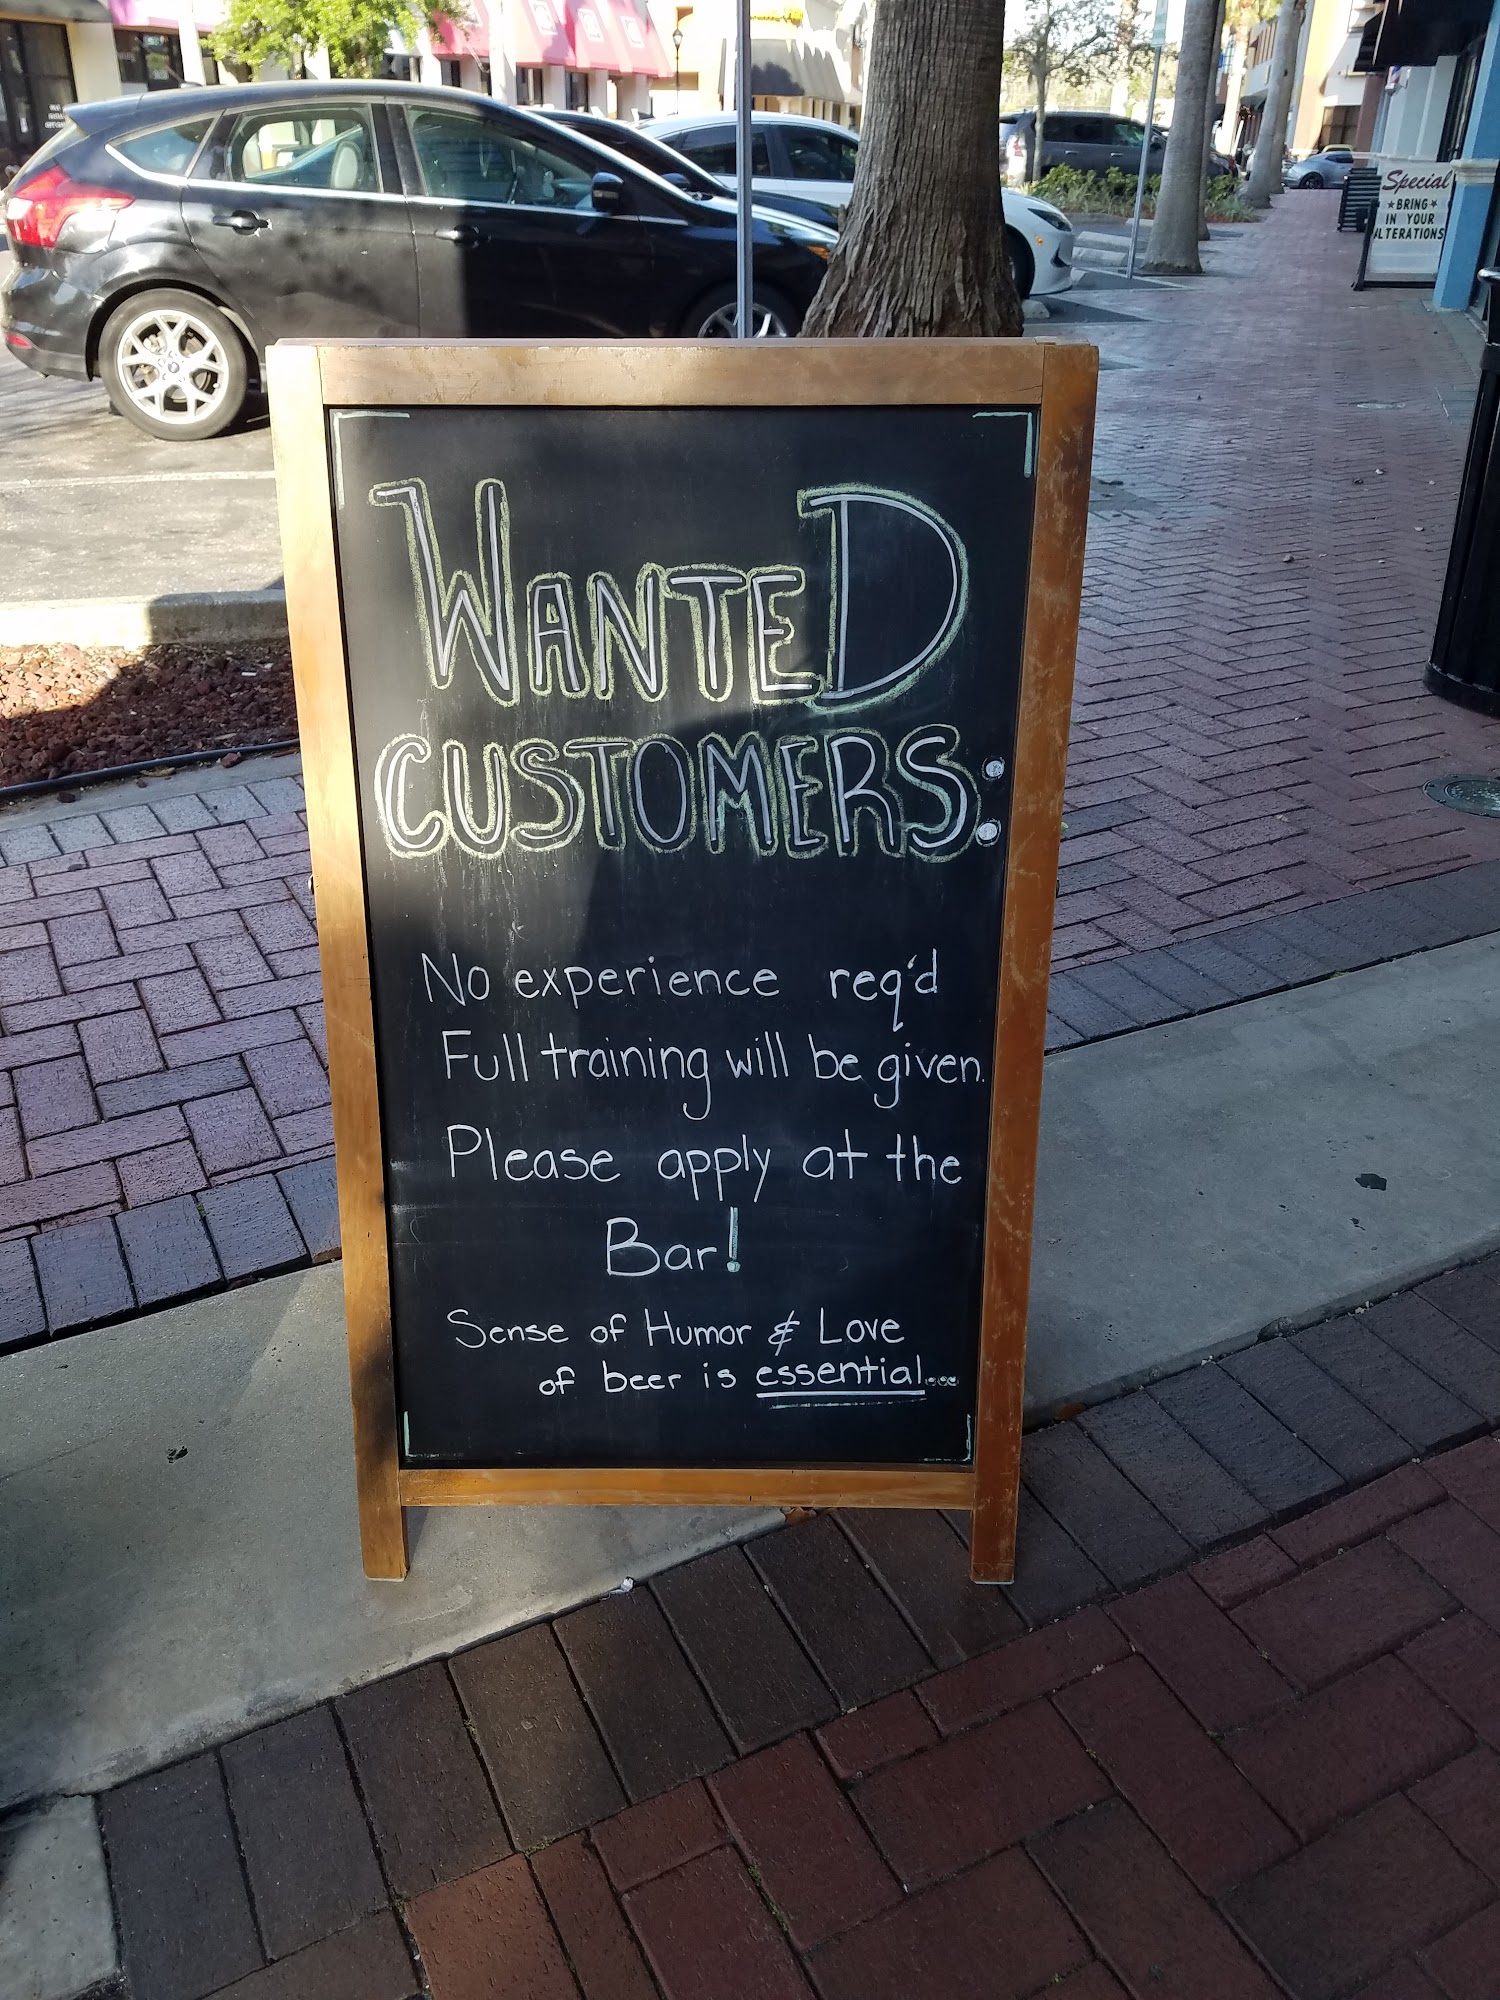 Special
★BRING★
IN YOUR
ALTERATIONS
WANTED
CUSTOMERS:
No experience req'd
Full training will be given.
Please apply at the
Bar!
Sense of Humor & Love
of beer is essential...